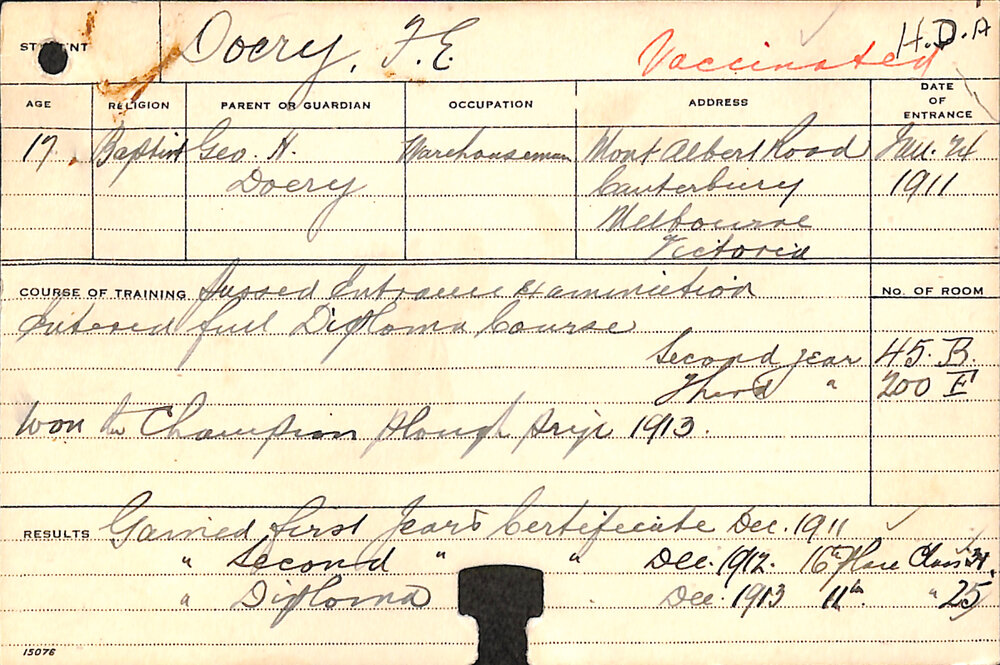 STUDENT Doery, F. E. Vaccinated H.D.A
AGE RELIGION PARENT OR GUARDIAN OCCUPATION ADDRESS DATE OF ENTRANCE
17. Baptist Geo. H. Warehouseman Mont Albert Road Jan. 24
Doery Canterbury 1911
Melbourne
Victoria
COURSE OF TRAINING Passed Entrance Examination No. OF ROOM
Entered full Diploma Course
Second year 45. B.
Third " 200 E
Won the Champion Plough Prize 1913.
RESULTS Gained First Year's Certificate Dec. 1911
" Second " " Dec. 1912. 16th Place Class 31.
" Diploma Dec. 1913 11th " 25
15076